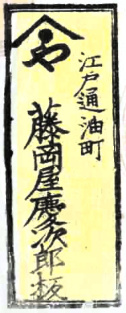 や
江戸通油町
藤岡屋慶次郎板